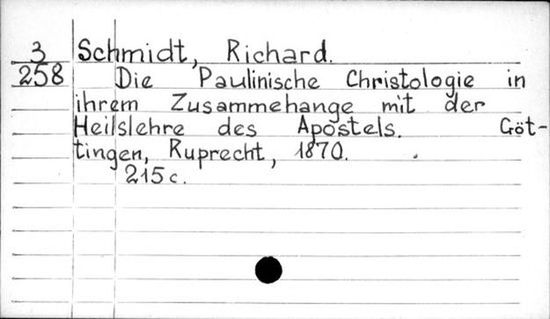 3 Schmidt, Richard.
258 Die Paulinische Christologie in
ihrem Zusammehange mit der
Heilslehre des Apostels. Göt-
tingen, Ruprecht, 1870.
215 c.